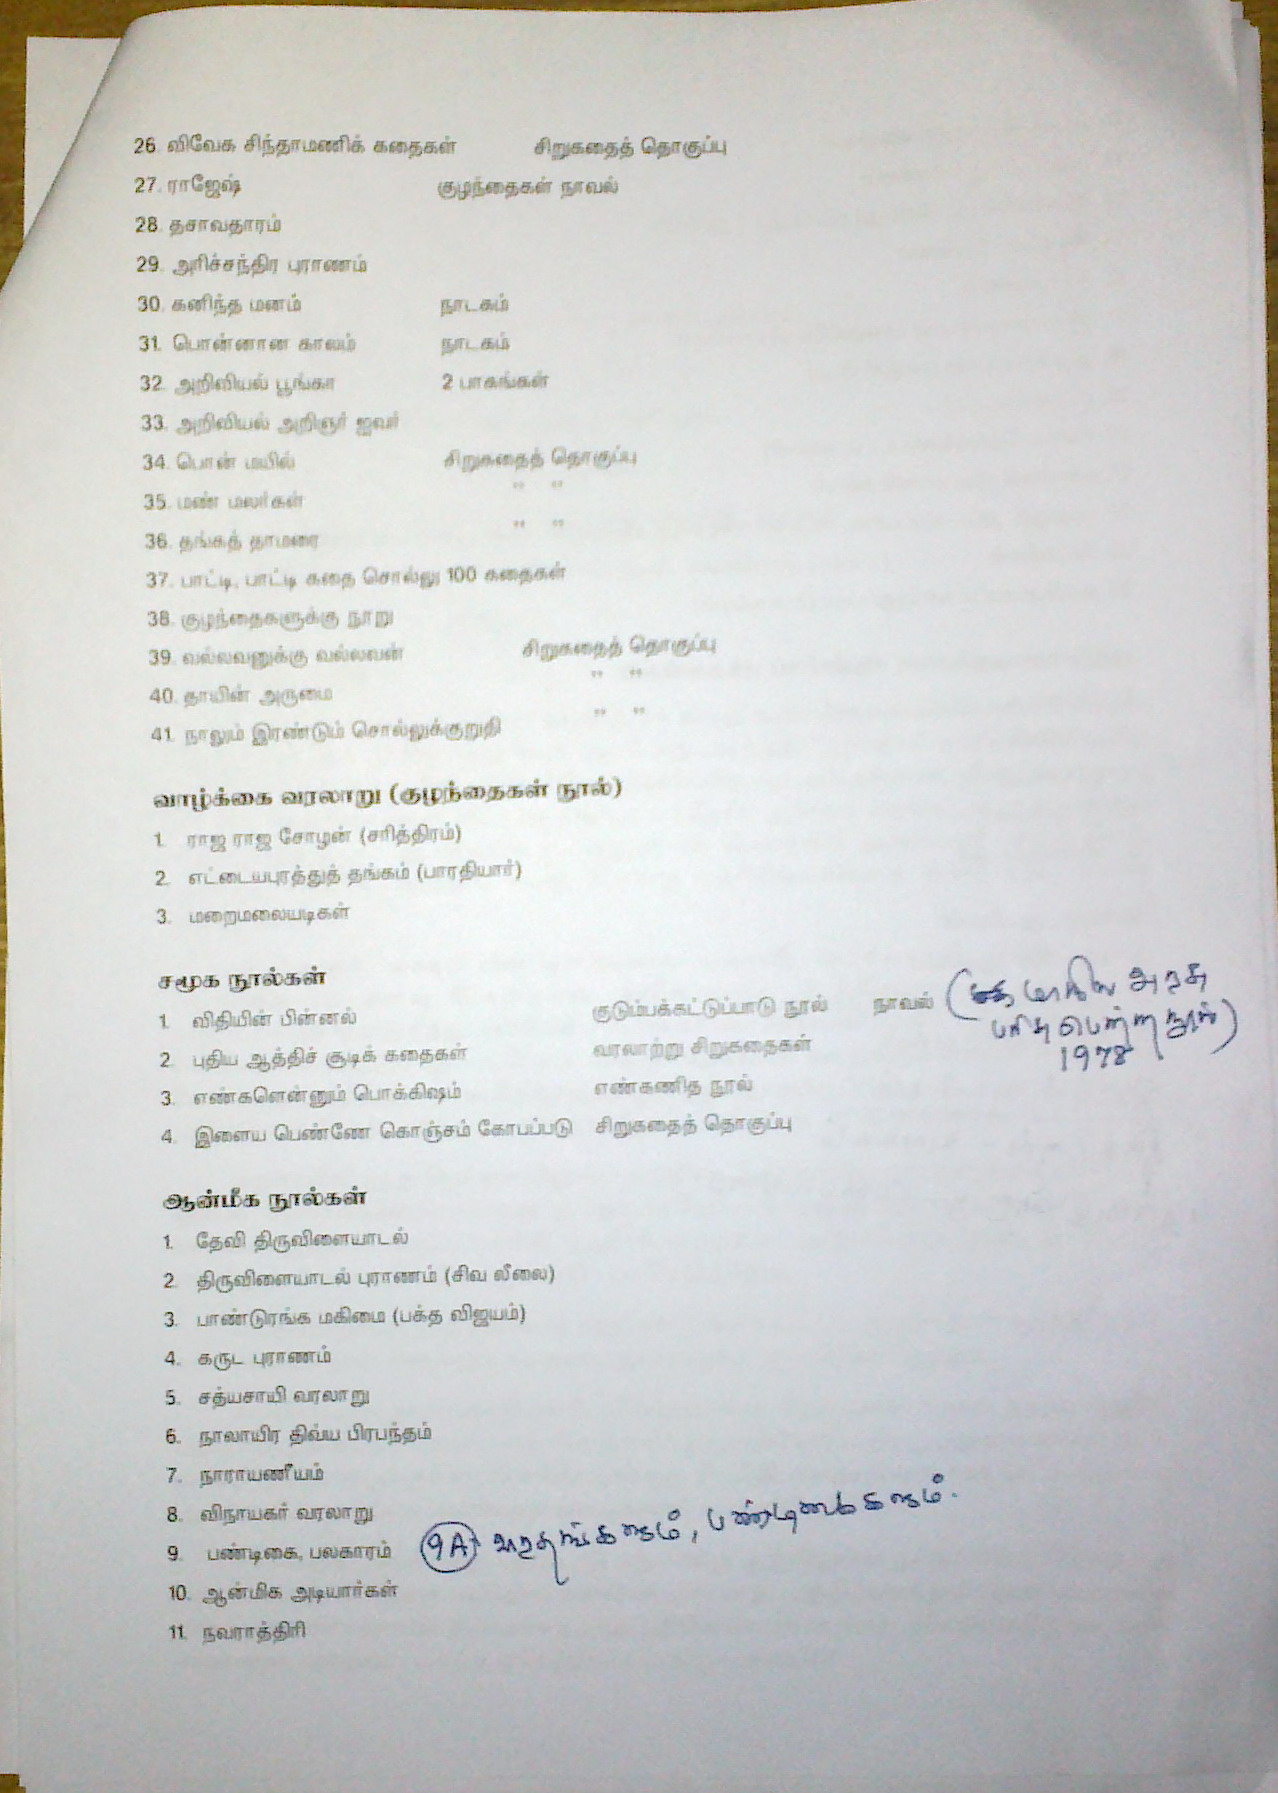 26. விவேக சிந்தாமணிக் கதைகள் சிறுகதைத் தொகுப்பு
27. ராஜேஷ் குழந்தைகள் நாவல்
28. தசாவதாரம்
29. அரிச்சந்திர புராணம்
30. கனிந்த மனம் நாடகம்
31. பொன்னான காலம் நாடகம்
32. அறிவியல் பூங்கா 2 பாகங்கள்
33. அறிவியல் அறிஞர் ஐவர்
34. பொன் மயில் சிறுகதைத் தொகுப்பு
35. மண் மலர்கள் " "
36. தங்கத் தாமரை " "
37. பாட்டி, பாட்டி கதை சொல்லு 100 கதைகள்
38. குழந்தைகளுக்கு நூறு
39. வல்லவனுக்கு வல்லவன் சிறுகதைத் தொகுப்பு
40. தாயின் அருமை " "
41. நாலும் இரண்டும் சொல்லுக்குறுதி " "
வாழ்க்கை வரலாறு (குழந்தைகள் நூல்)
1. ராஜ ராஜ சோழன் (சரித்திரம்)
2. எட்டையபுரத்துத் தங்கம் (பாரதியார்)
3. மறைமலையடிகள்
சமூக நூல்கள்
1. விதியின் பின்னல் குடும்பக்கட்டுப்பாடு நூல் நாவல் (மாநில அரசு
பரிசு பெற்ற நூல்)
1978
2. புதிய ஆத்திச் சூடிக் கதைகள் வரலாற்று சிறுகதைகள்
3. எண்களென்னும் பொக்கிஷம் எண்கணித நூல்
4. இளைய பெண்ணே கொஞ்சம் கோபப்படு சிறுகதைத் தொகுப்பு
ஆன்மீக நூல்கள்
1. தேவி திருவிளையாடல்
2. திருவிளையாடல் புராணம் (சிவ லீலை)
3. பாண்டுரங்க மகிமை (பக்த விஜயம்)
4. கருட புராணம்
5. சத்யசாயி வரலாறு
6. நாலாயிர திவ்ய பிரபந்தம்
7. நாராயணீயம்
8. விநாயகர் வரலாறு
9. பண்டிகை, பலகாரம் 9A விரதங்களும், பண்டிகைகளும்.
10. ஆன்மிக அடியார்கள்
11. நவராத்திரி